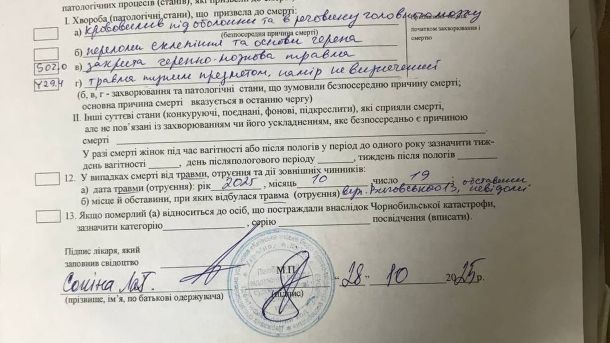 патологічних процесів (станів), які призвели до смерті
I. Хвороба (патологічні стани), що призвела до смерті:
а) крововилив під оболонки та в речовину головного мозку
(безпосередня причина смерті)
початком захворювання і
смертю
б) переломи склепіння та основи черепа
S02,0 в) закрита черепно-мозкова травма
Y29.4 г) травма тупим предметом, намір не визначений
(б, в, г - захворювання та патологічні стани, що зумовили безпосередню причину смерті;
основна причина смерті вказується в останню чергу)
II. Інші суттєві стани (конкуруючі, поєднані, фонові, підкреслити), які сприяли смерті,
але не пов'язані із захворюванням чи його ускладненням, яке безпосередньо є причиною
смерті
У разі смерті жінок під час вагітності або після пологів у період до одного року зазначити тиж-
день вагітності , день післяпологового періоду , тиждень після пологів
12. У випадках смерті від травми, отруєння та дії зовнішніх чинників:
а) дата травми (отруєння): рік 2025, місяць 10 число 19
б) місце й обставини, при яких відбулася травма (отруєння) вул. 13, обставини невідомі
13. Якщо померлий (а) відноситься до осіб, що постраждали внаслідок Чорнобильської катастрофи,
зазначити категорію , серію посвідчення (вписати).
Підпис лікаря, який
заповнив свідоцтво
М.П.
"28" 10 2025 р.
(прізвище, ім'я, по батькові одержувача) (підпис)